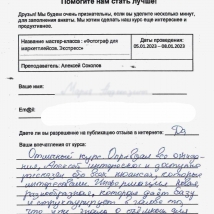 Помогите нам стать лучше!
Друзья! Мы будем очень признательны, если вы уделите несколько минут,
для заполнения анкеты. Мы хотим сделать наш курс еще интереснее и
продуктивнее.
Название мастер-класса : «Фотограф для
маркетплейсов. Экспресс»
Даты проведения:
05.01.2023 – 08.01.2023
Преподаватель: Алексей Соколов
Ваше имя
Email
Даете ли вы разрешение на публикацию отзыва в интернете: Да
Ваши впечатления от курса:
Отличный курс. Оправдал все ожида-
ния, Алексей интересно и доступно
рассказал обо всех нюансах, которые
Информация новая,
разнообразная, которая даёт базу
и структурирует в голове то,
что уже знали о съемке для